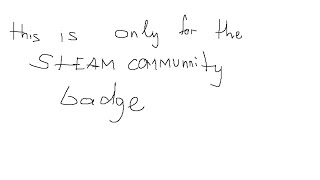 this is only for the
STEAM COMMUNITY
badge